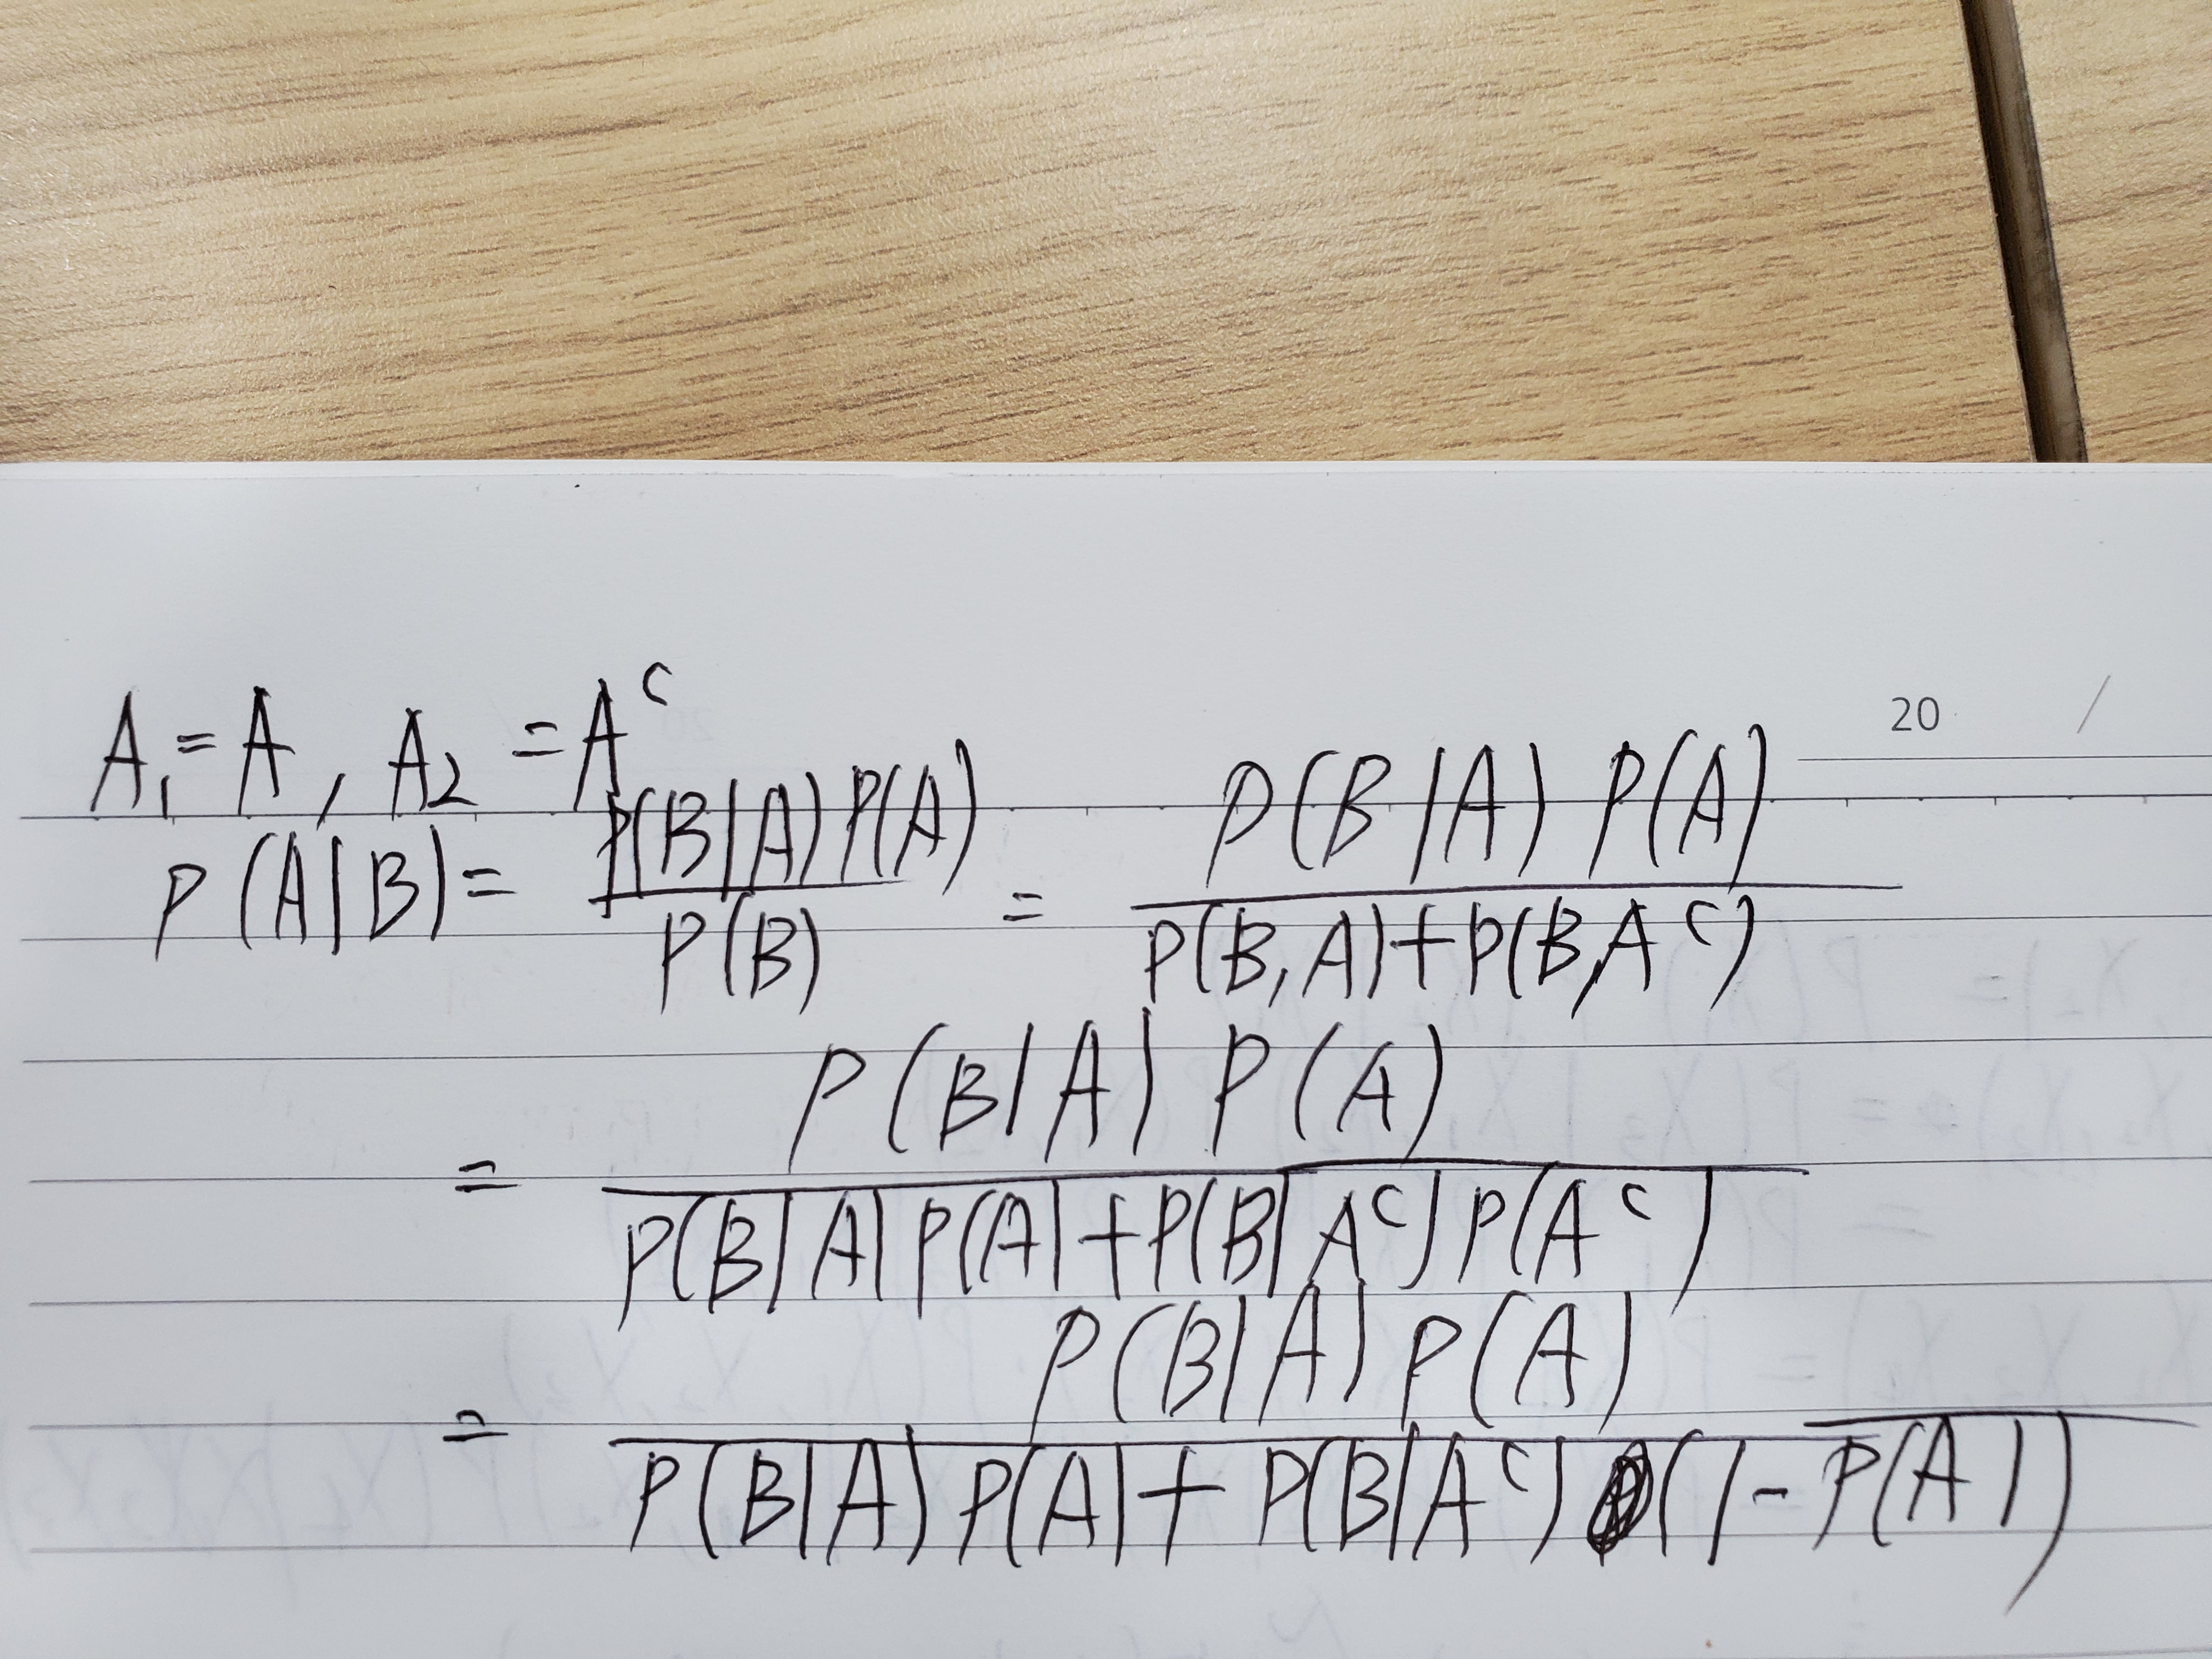 20 /
A₁ = A, A₂ = Aᶜ
P(A|B) = P(B|A)P(A) / P(B) = P(B|A)P(A) / P(B,A)+P(B,Aᶜ)
= P(B|A)P(A) / P(B|A)P(A)+P(B|Aᶜ)P(Aᶜ)
= P(B|A)P(A) / P(B|A)P(A)+P(B|Aᶜ)(1-P(A))